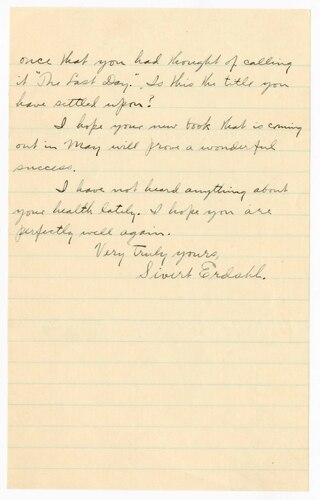 once that you had thought of calling
it "The Last Day." Is this the title you
have settled upon?
I hope your new book that is coming
out in May will prove a wonderful
success.
I have not heard anything about
your health lately. I hope you are
perfectly well again.
Very truly yours,
Sivert Erdahl.